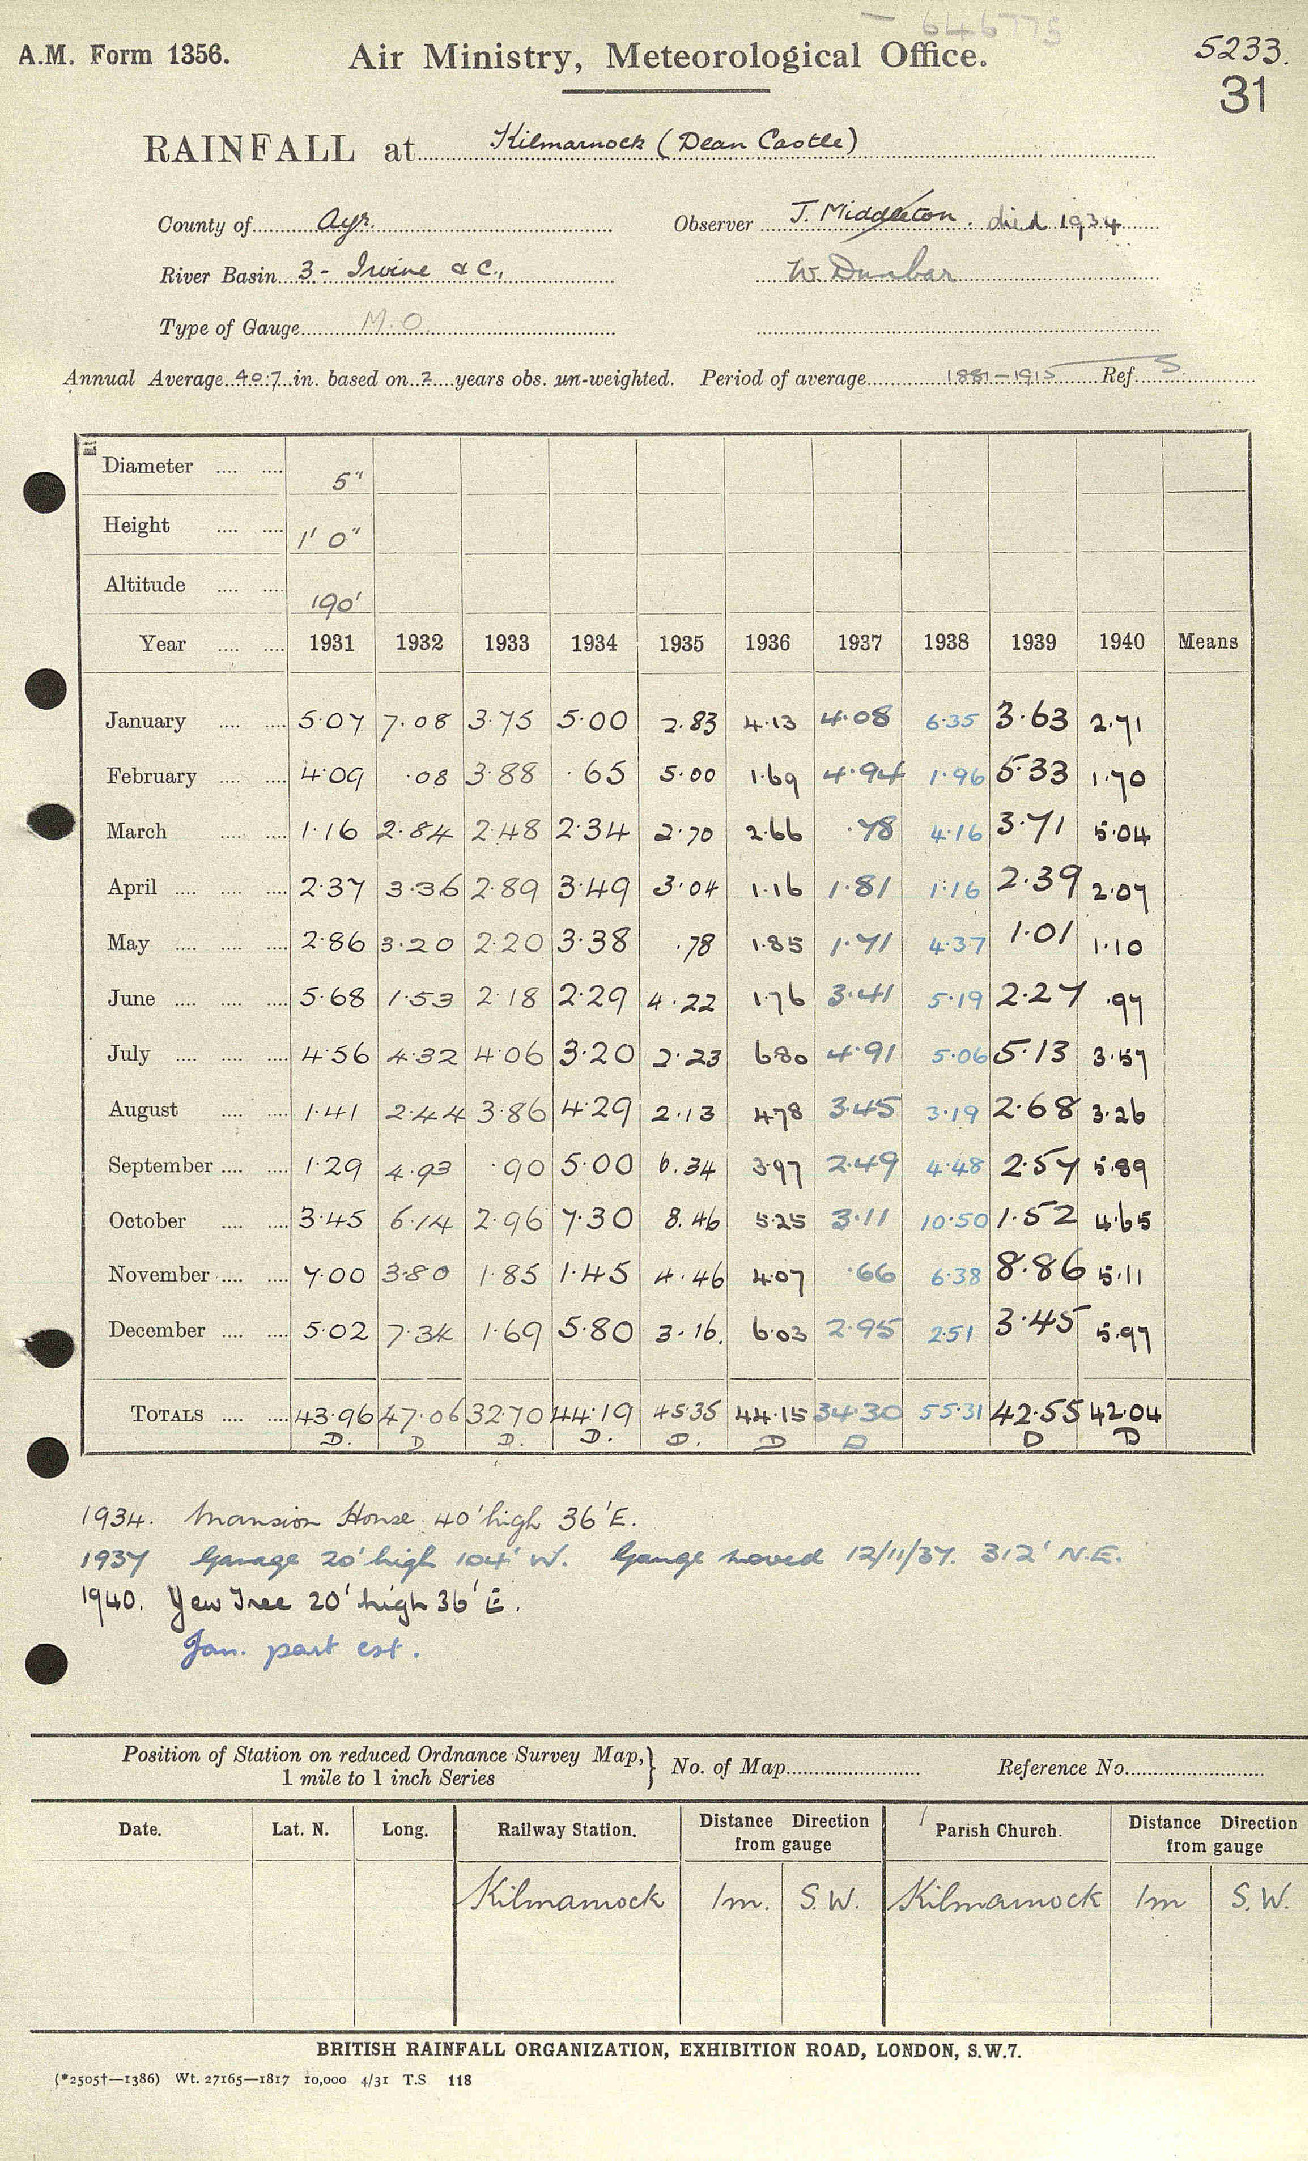 646775
A.M. Form 1356. Air Ministry, Meteorological Office. 5233.
31
RAINFALL at Kilmarnock (Dean Castle)
County of Ayr. Observer J. Middleton. died 1934
River Basin 3 - Irvine &c., W. Dunbar
Type of Gauge M.O.
Annual Average 40.7 in. based on 2 years obs. un-weighted. Period of average 1881-1915 Ref. S
Diameter .... .... 5"
Height .... .... 1' 0"
Altitude .... .... 190'
Year .... .... 1931 1932 1933 1934 1935 1936 1937 1938 1939 1940 Means
January .... .... 5.07 7.08 3.75 5.00 2.83 4.13 4.08 6.35 3.63 2.71
February .... .... 4.09 .08 3.88 .65 5.00 1.69 4.94 1.96 5.33 1.70
March .... .... 1.16 2.84 2.48 2.34 2.70 2.66 .78 4.16 3.71 5.04
April .... .... .... 2.37 3.36 2.89 3.49 3.04 1.16 1.81 1.16 2.39 2.07
May .... .... .... 2.86 3.20 2.20 3.38 .78 1.85 1.71 4.37 1.01 1.10
June .... .... .... 5.68 1.53 2.18 2.29 4.22 1.76 3.41 5.19 2.27 .97
July .... .... .... 4.56 4.32 4.06 3.20 2.23 6.80 4.91 5.06 5.13 3.57
August .... .... 1.41 2.44 3.86 4.29 2.13 4.78 3.45 3.19 2.68 3.26
September .... .... 1.29 4.93 .90 5.00 6.34 3.97 2.49 4.48 2.57 5.89
October .... .... 3.45 6.14 2.96 7.30 8.46 5.25 3.11 10.50 1.52 4.65
November .... .... 7.00 3.80 1.85 1.45 4.46 4.07 .66 6.38 8.86 5.11
December .... .... 5.02 7.34 1.69 5.80 3.16. 6.03 2.95 2.51 3.45 5.97
TOTALS .... .... 43.96 47.06 32.70 44.19 45.35 44.15 34.30 55.31 42.55 42.04
D. D D. D. D. D D D D
1934. Mansion House 40' high 36' E.
1937 Garage 20' high 104' W. Gauge moved 12/11/37. 312' N.E.
1940. Yew Tree 20' high 36' E.
Jan. part est.
Position of Station on reduced Ordnance Survey Map,} No. of Map Reference No.
1 mile to 1 inch Series
Date. Lat. N. Long. Railway Station. Distance Direction from gauge Parish Church. Distance Direction from gauge
Kilmarnock 1m. S.W. Kilmarnock 1m S.W.
BRITISH RAINFALL ORGANIZATION, EXHIBITION ROAD, LONDON, S.W.7.
(*2505†—1386) Wt. 27165—1817 10,000 4/31 T.S 118